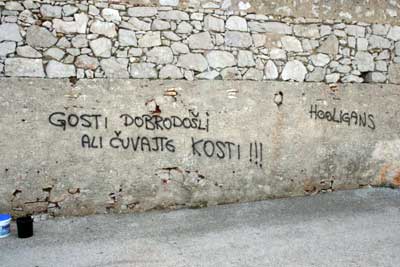 GOSTI DOBRODOŠLI
ALI ČUVAJTE KOSTI !!!
HOOLIGANS